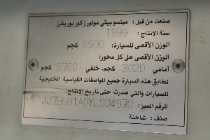 صنعت من قبل: ميتسوبيشي موتورز كوربوريشن
سنة الإنتاج: 1999
الوزن الأقصى للسيارة: 8500 كجم
الوزن الأقصى
أمامي 3020 كجم. خلفي 5760 كجم
تطابق هذه السيارة جميع المواصفات القياسية الخليجية
للسيارات والتي صدرت حتى تاريخ الإنتاج
الرقم المميز:
صنف: شاحنة